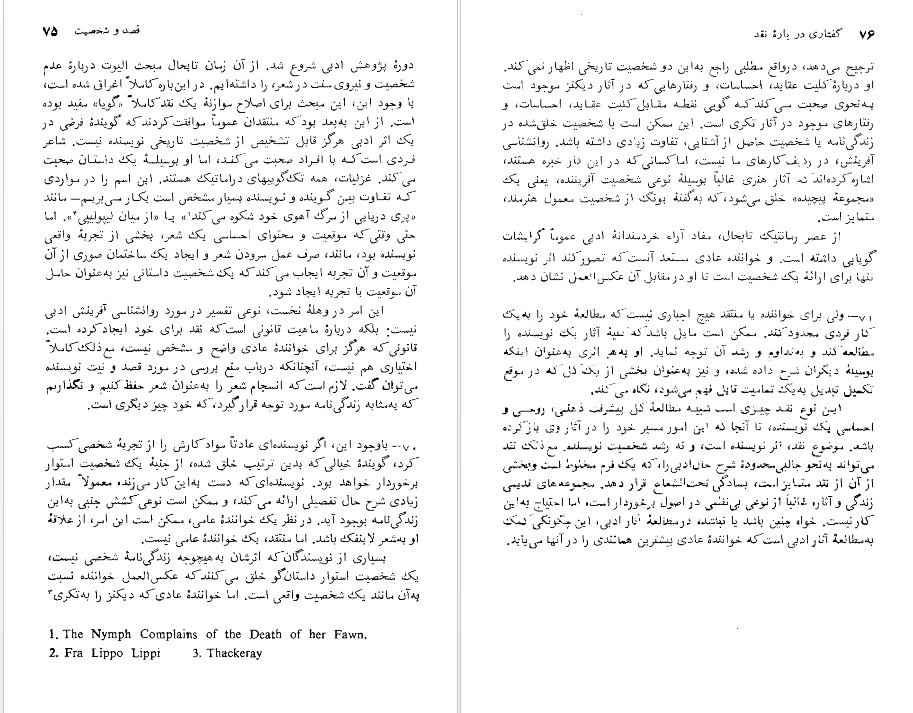 قصد و شخصیت ۷۵
دورهٔ پژوهش ادبی شروع شد. از آن زمان تابحال مبحث الیوت دربارهٔ عدم
شخصیت و نیروی سنت در شعر، را داشته‌ایم. در این‌باره کاملاً اغراق شده است،
با وجود این، این مبحث برای اصلاح موازنهٔ یک نقد کاملاً «گویا» مفید بوده
است. از این به‌بعد بود که منتقدان عموماً موافقت کردند که گویندهٔ فرضی در
یک اثر ادبی هرگز قابل تشخیص از شخصیت تاریخی نویسنده نیست. شاعر
فردی است که با افراد صحبت می‌کند، اما او بوسیلهٔ یک داستان صحبت
می‌کند. غزلیات، همه تک‌گوییهای دراماتیک هستند. این اسم را در مواردی
که تفاوت بین گوینده و نویسنده بسیار مشخص است بکار می‌بریم— مانند
«پری دریایی از مرگ آهوی خود شکوه می‌کند۱» یا «از میان لیپولیپی۲». اما
حتی وقتی که موقعیت و محتوای احساسی یک شعر، بخشی از تجربهٔ واقعی
نویسنده بود، مانند، صرف عمل سرودن شعر و ایجاد یک ساختمان صوری از آن
موقعیت و آن تجربه ایجاب می‌کند که یک شخصیت داستانی نیز به‌عنوان حامل
آن موقعیت با تجربه ایجاد شود.
این امر در وهلهٔ نخست، نوعی تفسیر در مورد روانشناسی آفرینش ادبی
نیست: بلکه دربارهٔ ماهیت قانونی است که نقد برای خود ایجاد کرده است.
قانونی که هرگز برای خواننده‌ای عادی واضح و مشخص نیست، مع‌ذلک کاملاً
اختیاری هم نیست، آنچنانکه درباب منع بررسی در مورد قصد و نیت نویسنده
می‌توان گفت. لازم است که انسجام شعر را به‌عنوان شعر حفظ کنیم و نگذاریم
که به‌مثابه زندگی‌نامه مورد توجه قرار گیرد، که خود چیز دیگری است.
۷۰— باوجود این، اگر نویسنده‌ای عادتاً مواد کارش را از تجربهٔ شخصی کسب
کرد، گویندهٔ خیالی که بدین ترتیب خلق شده، از جنبهٔ یک شخصیت استوار
برخوردار خواهد بود. نویسنده‌ای که دست به‌این کار می‌زند، معمولاً مقدار
زیادی شرح حال تفصیلی ارائه می‌کند، و ممکن است نوعی کشش جنبی به‌این
زندگی‌نامه بوجود آید. در نظر یک خوانندهٔ عامی، ممکن است این امر، از علاقهٔ
او به‌شعر لاینفک باشد. اما منتقد، یک خوانندهٔ عامی نیست.
بسیاری از نویسندگان که اثرشان به‌هیچوجه زندگی‌نامهٔ شخصی نیست،
یک شخصیت استوار داستان‌گو خلق می‌کنند که عکس‌العمل خواننده نسبت
به‌آن مانند یک شخصیت واقعی است. اما خوانندهٔ عادی که دیکنز را به‌تکری۳
1. The Nymph Complains of the Death of her Fawn.
2. Fra Lippo Lippi 3. Thackeray
۷۶ گفتاری در بارهٔ نقد
ترجیح می‌دهد، درواقع مطلبی راجع به‌این دو شخصیت تاریخی اظهار نمی‌کند.
او دربارهٔ کلیت عقاید، احساسات، و رفتارهایی که در آثار دیکنز موجود است
به‌نحوی صحبت می‌کند که گویی نقطه مقابل کلیت عقاید، احساسات، و
رفتارهای موجود در آثار تکری است. این ممکن است با شخصیت خلق‌شده در
زندگی‌نامه یا شخصیت حاصل از آشنایی، تفاوت زیادی داشته باشد. روانشناسی
آفرینش، در ردیف کارهای ما نیست، اما کسانی که در این کار خبره هستند،
اشاره کرده‌اند که آثار هنری غالباً بوسیلهٔ نوعی شخصیت آفریننده، یعنی یک
«مجموعهٔ پیچیده» خلق می‌شود، که به‌گفتهٔ یونگ از شخصیت معمول هنرمند،
متمایز است.
از عصر رمانتیک تابحال، مفاد آراء خردمندانهٔ ادبی عموماً گرایشات
گویایی داشته است. و خوانندهٔ عادی مستعد آنست که تصور کند اثر نویسنده
تنها برای ارائه یک شخصیت است تا او در مقابل آن عکس‌العمل نشان دهد.
۷۱— ولی برای خواننده یا منتقد هیچ اجباری نیست که مطالعهٔ خود را به‌یک
کار فردی محدود کند. ممکن است مایل باشد که بقیهٔ آثار یک نویسنده را
مطالعه کند و به‌تداوم و رشد آن توجه نماید. او به‌هر اثری به‌عنوان اینکه
بوسیلهٔ دیگران شرح داده شده، و نیز به‌عنوان بخشی از یک کل که در موقع
تکمیل تبدیل به‌یک تمامیت قابل فهم می‌شود، نگاه می‌کند.
این نوع نقد چیزی است شبیه مطالعهٔ کل پیشرفت ذهنی، روحی و
احساسی یک نویسنده، تا آنجا که این امور مسیر خود را در آثار وی باز کرده
باشد. موضوع نقد، اثر نویسنده است، و نه رشد شخصیت نویسنده. مع‌ذلک نقد
می‌تواند به‌نحو جالبی محدودهٔ شرح حال ادبی را، که یک فرم مخلوط است و بخشی
از آن از نقد متمایز است، بسادگی تحت‌الشعاع قرار دهد. مجموعه‌های قدیمی
زندگی و آثار، غالباً از نوعی بی‌نظمی در اصول برخوردار است، اما احتیاج به‌این
کار نیست. خواه چنین باشد یا نباشد، در مطالعهٔ آثار ادبی، این چگونگی کمک
به‌مطالعهٔ آثار ادبی است که خوانندهٔ عادی بیشترین همانندی را در آنها می‌یابد.